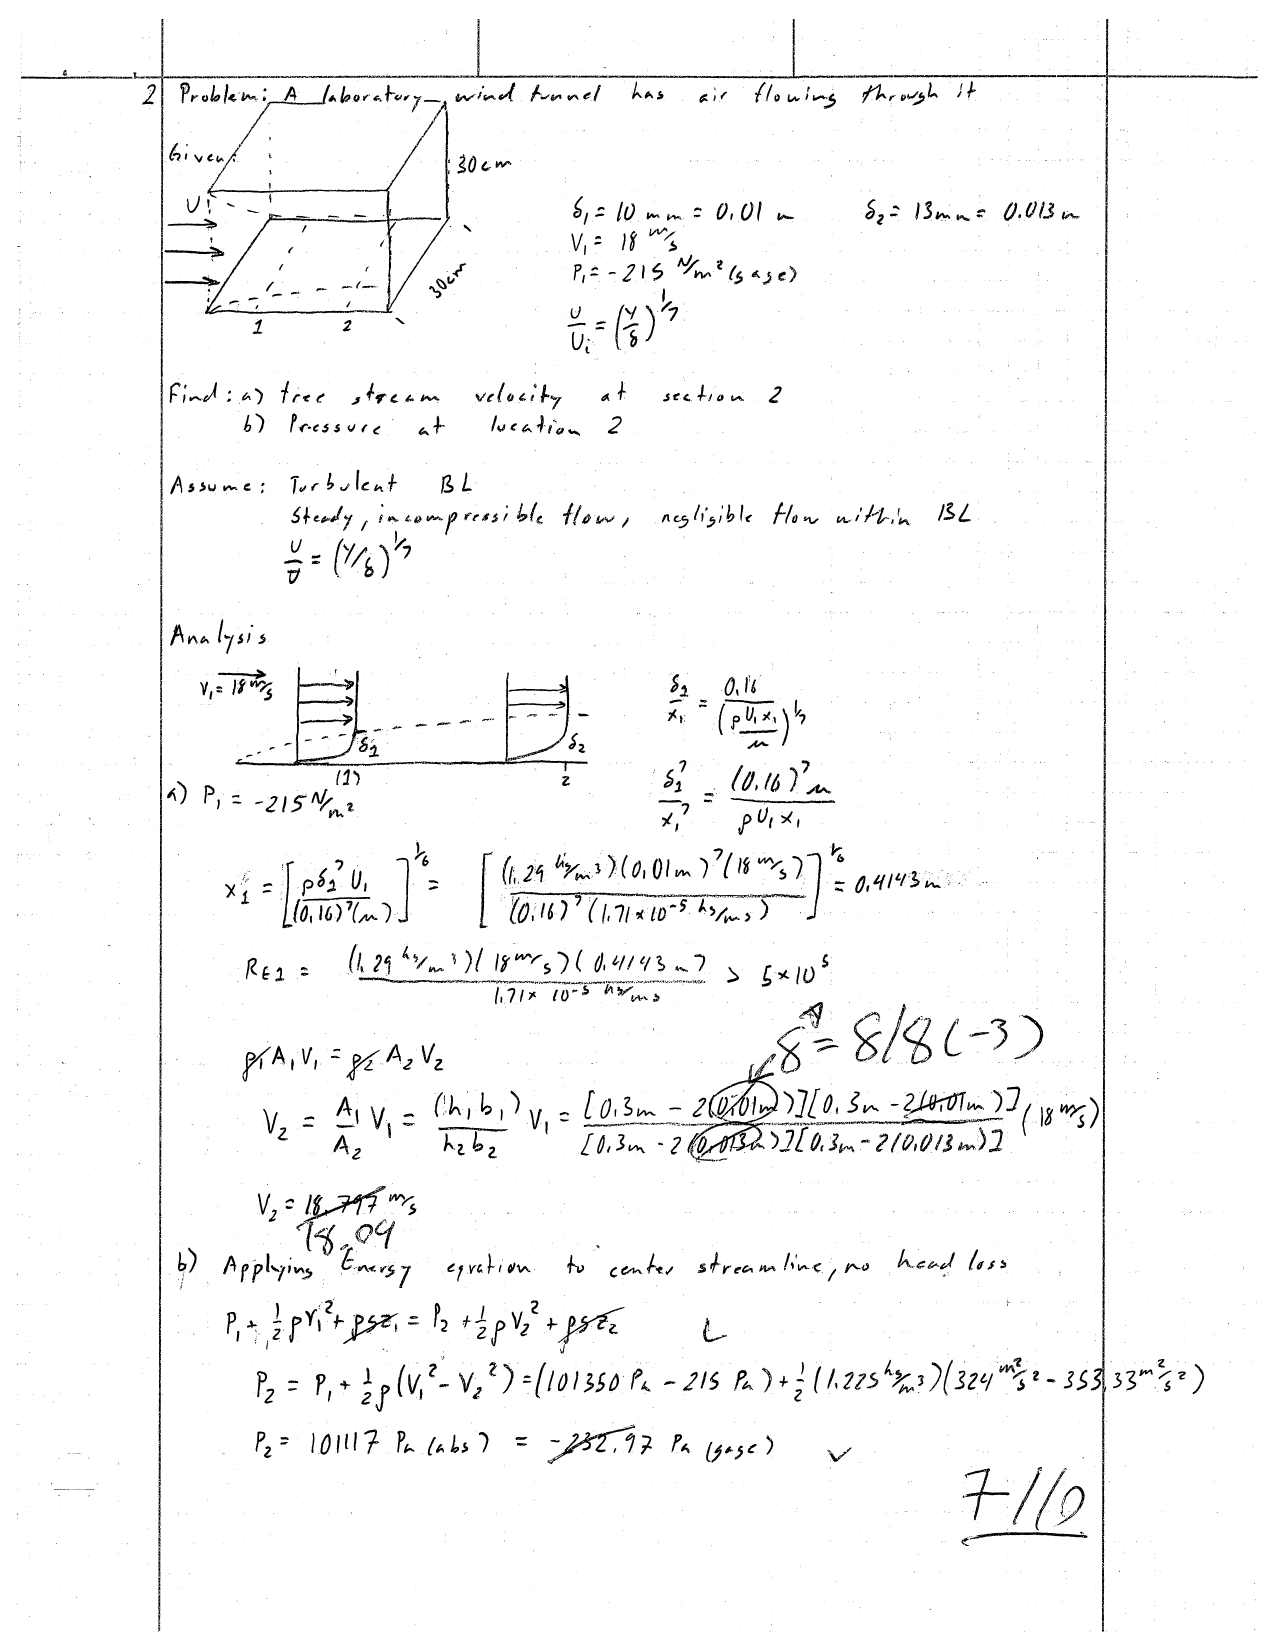 2 Problem: A laboratory wind tunnel has air flowing through it
Given:
30cm
U
30cm
1 2
δ₁ = 10 mm = 0.01 m δ₂ = 13mm = 0.013 m
V₁ = 18 m/s
P₁ = -215 N/m² (gage)
U/Uᵢ = (y/δ)^1/7
Find: a) free stream velocity at section 2
b) Pressure at location 2
Assume: Turbulent BL
Steady, incompressible flow, negligible flow within BL
U/U = (y/δ)^1/7
Analysis
V₁ = 18 m/s
δ₁ δ₂
(1) 2
δ₁/x₁ = 0.16/(ρU₁x₁/μ)^1/7
δ₁⁷/x₁⁷ = (0.16)⁷μ/ρU₁x₁
a) P₁ = -215 N/m²
x₁ = [ρδ₁⁷U₁/(0.16)⁷(μ)]^1/6 = [(1.29 kg/m³)(0.01m)⁷(18 m/s)/(0.16)⁷(1.71×10⁻⁵ kg/ms)]^1/6 = 0.4143 m
RE1 = (1.29 kg/m³)(18 m/s)(0.4143 m)/1.71×10⁻⁵ kg/ms > 5×10⁵
δ^A = δ/8 (-3)
ρ₁A₁V₁ = ρ₂A₂V₂
V₂ = A₁/A₂ V₁ = (h₁b₁)/h₂b₂ V₁ = [0.3m - 2(0.01m)][0.3m - 2(0.01m)]/[0.3m - 2(0.013m)][0.3m - 2(0.013m)] (18 m/s)
V₂ = 18.797 m/s
18.09
b) Applying Energy eqration to center streamline, no head loss
P₁ + ½ρV₁² + ρgz₁ = P₂ + ½ρV₂² + ρgz₂
P₂ = P₁ + ½ρ(V₁² - V₂²) = (101350 Pa - 215 Pa) + ½(1.225 kg/m³)(324 m²/s² - 353.33 m²/s²)
P₂ = 101117 Pa (abs) = -232.97 Pa (gage) ✓
7/10